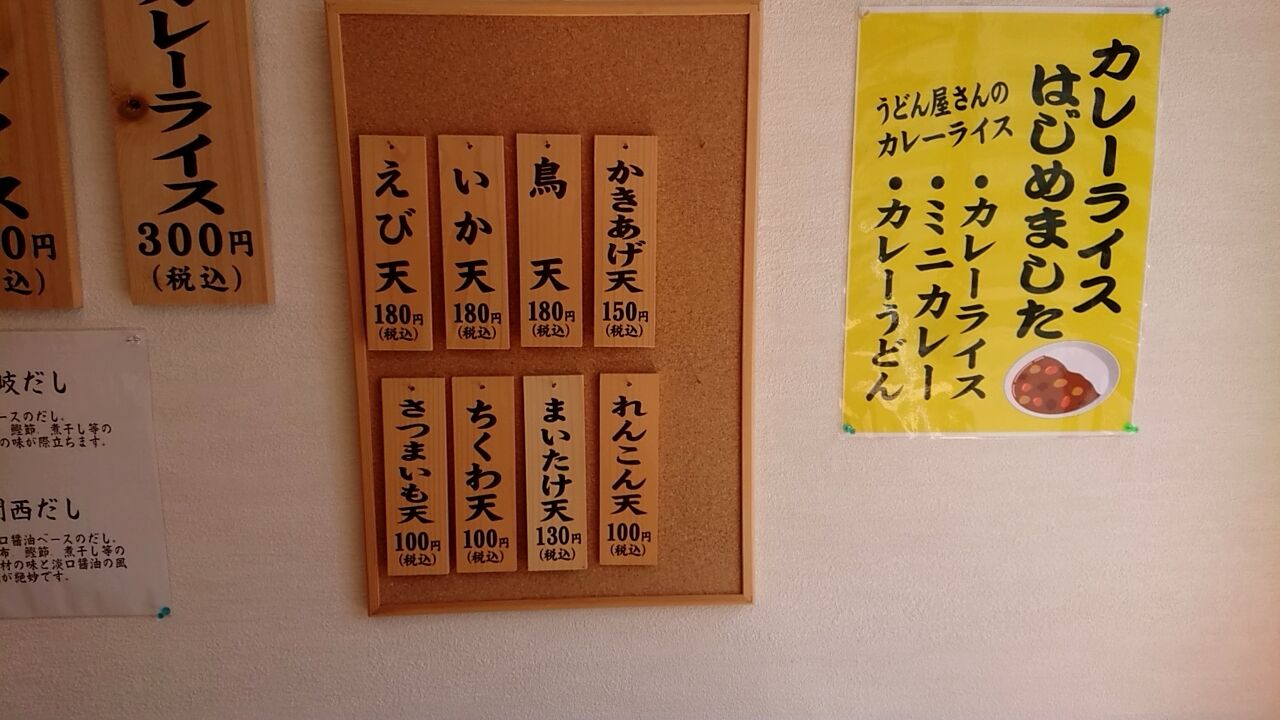 カレーライス
はじめました
うどん屋さんの
カレーライス
・カレーライス
・ミニカレー
・カレーうどん
かきあげ天
150円
(税込)
鳥 天
180円
(税込)
いか天
180円
(税込)
えび天
180円
(税込)
れんこん天
100円
(税込)
まいたけ天
130円
(税込)
ちくわ天
100円
(税込)
さつまいも天
100円
(税込)
レーライス
300円
(税込)
ス
0円
込)
岐だし
ースのだし。
鰹節 煮干し等の
の味が際立ちます。
西だし
口醤油ベースのだし。
布 鰹節 煮干し等の
材の味と淡口醤油の風
が絶妙です。